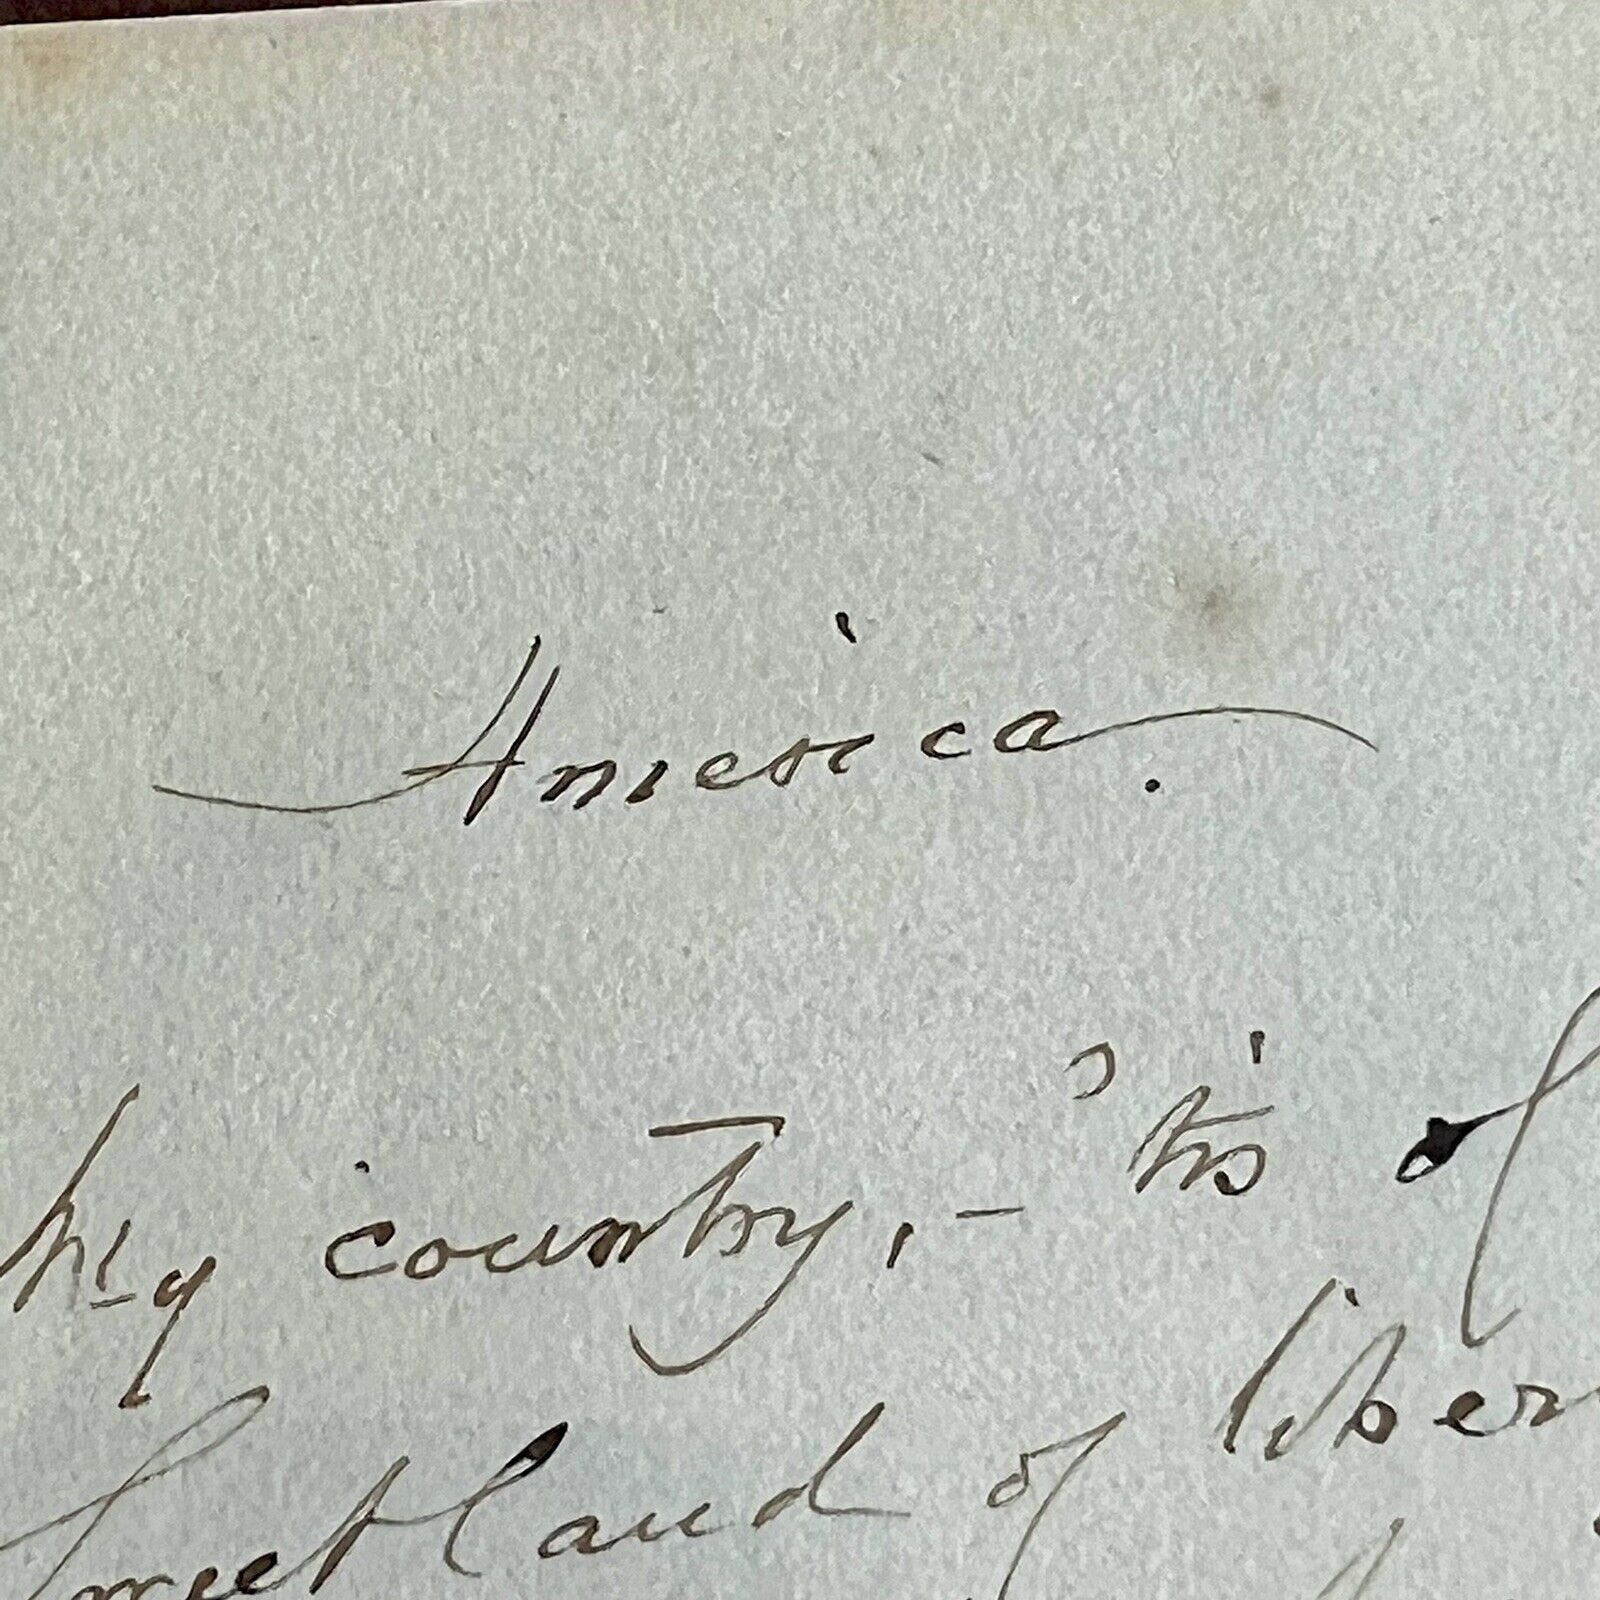 America.
My country,- 'tis of
Sweet land of liber